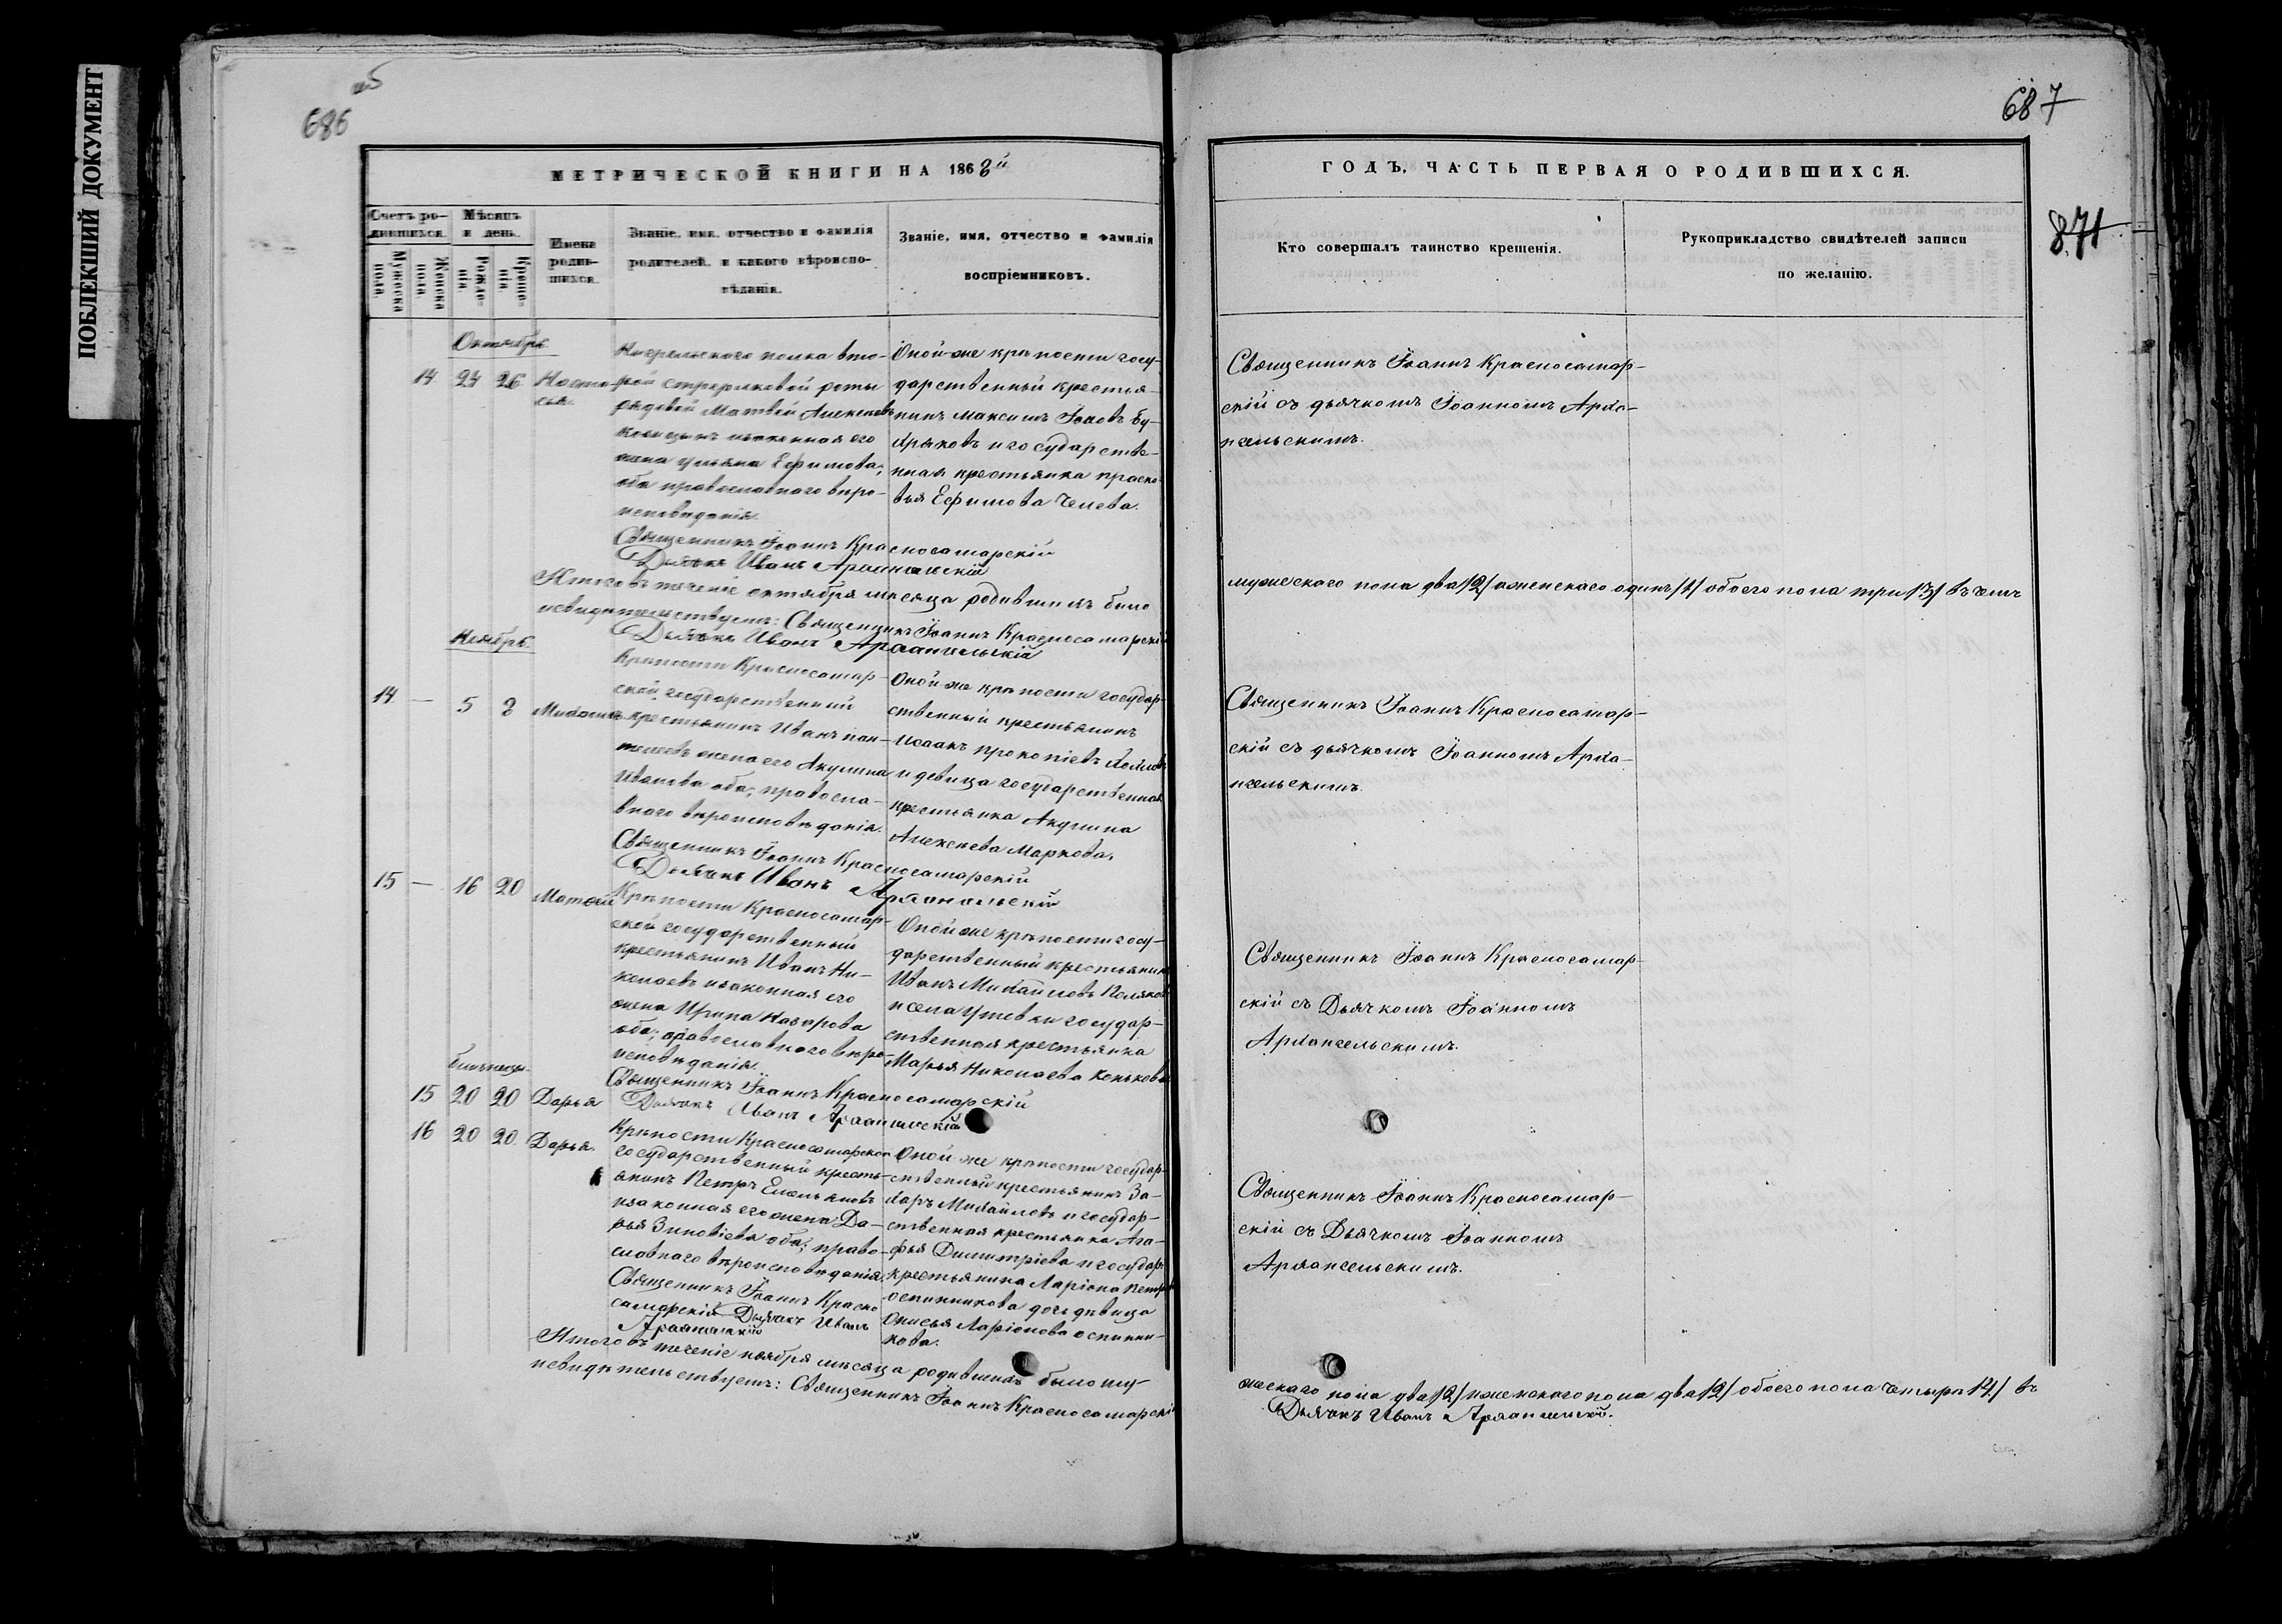 ПОБЛЕКШИЙ ДОКУМЕНТ
686
687
871
МЕТРИЧЕСКОЙ КНИГИ НА 1868й
Счетъ ро-
дившихся.
Мужеска
пола.
Женска
пола.
Мѣсяцъ
и день.
Рожде-
нія
Креще-
нія
Имена
родив-
шихся.
Званіе, имя, отчество и фамилія
родителей, и какого вѣроиспо-
вѣданія.
Званіе, имя, отчество и фамилія
воспріемниковъ.
Октябрь
14 24 26 Наста-
сья
полка вто-
рой стрелковой роты
рядовой Матвей Алексеевъ
законная его
жена Ульяна Ефимова,
оба православнаго веро-
исповеданія.
Священникъ Іоаннъ Красносамарскій
Дьячекъ Иванъ Архангельскій
Оной-же крѣпости госу-
дарственный крестья-
нинъ Максимъ Іовъ Бу-
и государстве-
нная крестьянка Праско-
вья Ефимова Челева.
Итого въ теченіе октября месяца родившихся было
и свидетельствуемъ: Священникъ Іоаннъ Красносамарскій
Дьячекъ Иванъ Архангельскій
Ноябрь
14 — 5 8 Михаилъ
Крѣпости Красносамар-
ской государственный
крестьянинъ Иванъ Пан-
телеевъ жена его Акулина
Иванова оба, правосла-
вного вѣроисповѣданія.
Священникъ Іоаннъ Красносамарскій
Дьячекъ Иванъ Архангельскій
Оной-же крѣпости государ-
ственный крестьянинъ
Исаакъ Прокопіевъ
и девица государственная
крестьянка Акулина
Алексеева Маркова.
15 — 16 20 Матвей
Крѣпости Красносамар-
ской государственный
крестьянинъ Иванъ Ни-
колаевъ и законная его
жена Ирина Назарова
оба, православнаго веро-
исповѣданія.
Священникъ Іоаннъ Красносамарскій
Дьячекъ Иванъ Архангельскій
Оной же крѣпости госу-
дарственный крестьянинъ
Иванъ Михайловъ Поляковъ
и села Утевки государ-
ственная крестьянка
Марья Николаева Конькова
близнецы
15 20 20 Дарья
16 20 20 Дарья.
Крѣпости Красносамарской
государственный кресть-
янинъ Петръ Емельяновъ
и законная его жена Да-
рья Зиновіева оба, право-
славнаго вѣроисповѣданія.
Священникъ Іоаннъ Красно-
самарскій Дьячекъ Иванъ
Архангельскій
Оной-же крѣпости государ-
ственный крестьянинъ За-
харъ Михайловъ и государ-
ственная крестьянка Ага-
фья Димитріева и государ.
крестьянина Ларіона Петрова
Оспинникова дочь дѣвица
Онисья Ларіонова Оспинни-
кова.
Итого въ теченіе ноября мѣсяца родившихся было му-
и свидѣтельствуемъ: Священникъ Іоаннъ Красносамарскій
ГОДЪ, ЧАСТЬ ПЕРВАЯ О РОДИВШИХСЯ.
Кто совершалъ таинство крещенія.
Рукоприкладство свидѣтелей записи
по желанію.
Священникъ Іоаннъ Красносамар-
скій съ дьячкомъ Іоанномъ Арха-
нгельскимъ.
мужескаго пола два /2/ а женскаго одинъ /1/ обоего пола три /3/ въ чемъ
Священникъ Іоаннъ Красносамар-
скій съ дьячкомъ Іоанномъ Арха-
нгельскимъ.
Священникъ Іоаннъ Красносамар-
скій съ Дьячкомъ Іоанномъ
Архангельскимъ.
Священникъ Іоаннъ Красносамар-
скій съ Дьячкомъ Іоанномъ
Архангельскимъ.
жескаго пола два /2/ и женскаго пола два /2/ обоего пола четыре /4/ въ
Дьячекъ Иванъ Архангельскій.